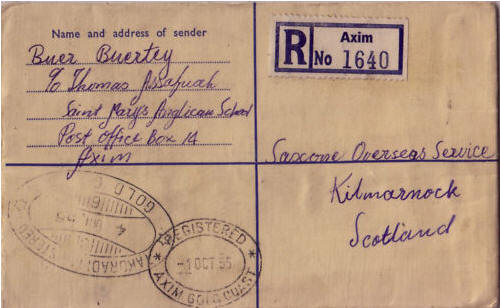 Name and address of sender
Buer Buertey
c/o Thomas Assafuah
Saint Mary's Anglican School
Post Office Box 14
Axim
R
Axim
No 1640
Saxone Overseas Service
Kilmarnock
Scotland
GOLD
4
55
REGISTERED
1 OCT 55
AXIM GOLD COAST